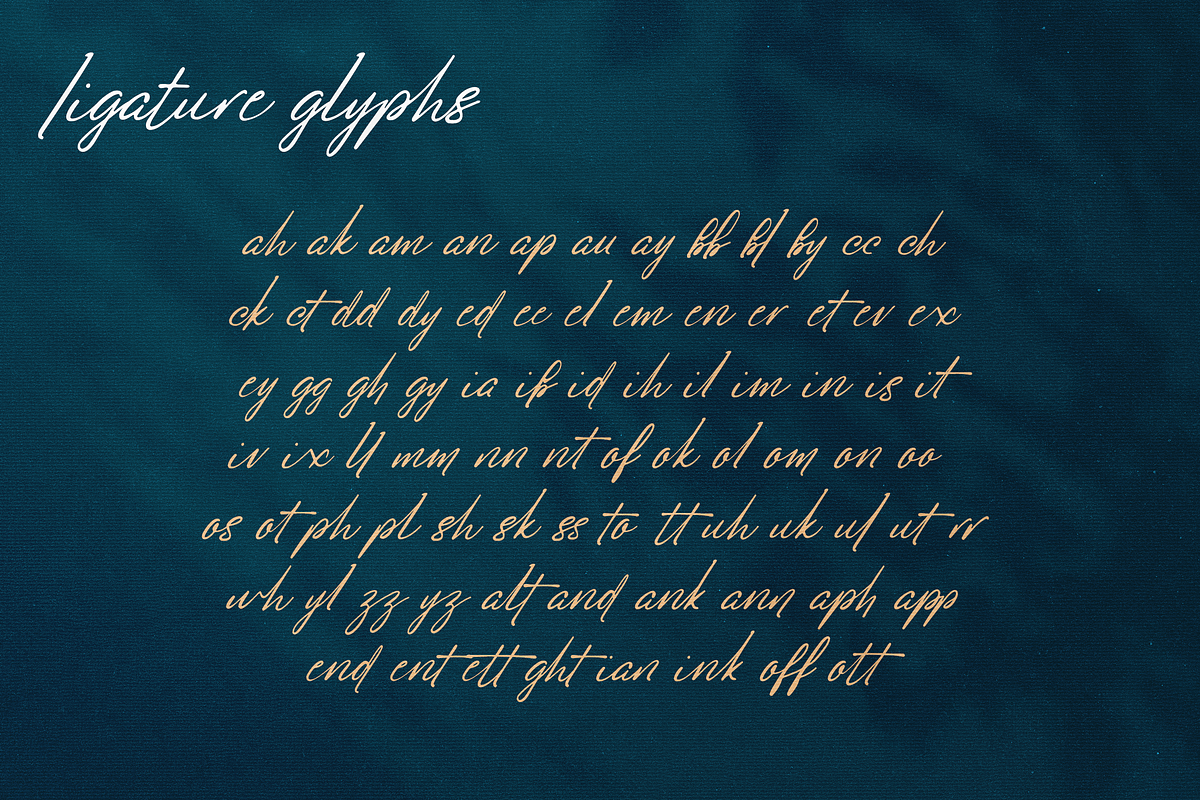 ligature glyphs
ah ak am an ap au ay bb bl by cc ch
ck ct dd dy ed ee el em en er et ev ex
ey gg gh gy ia ib id ih il im in is it
iv ix ll mm nn nt of ok ol om on oo
os ot ph pl sh sk ss to tt uh uk ul ut rr
wh yl zz yz alt and ank ann aph app
end ent ett ght ian ink off ott